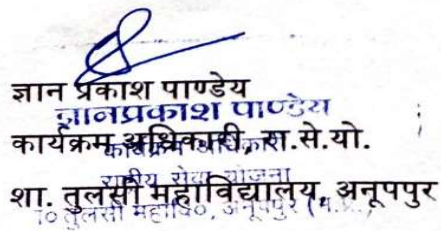 ज्ञान प्रकाश पाण्डेय
ज्ञानप्रकाश पाण्डेय
कार्यक्रम अधिकारी, रा.से.यो.
कार्यक्रम अधिकारी
राष्ट्रीय सेवा योजना
शा. तुलसी महाविद्यालय, अनूपपुर
तुलसी महावि०, अनूपपुर (म.प्र.)